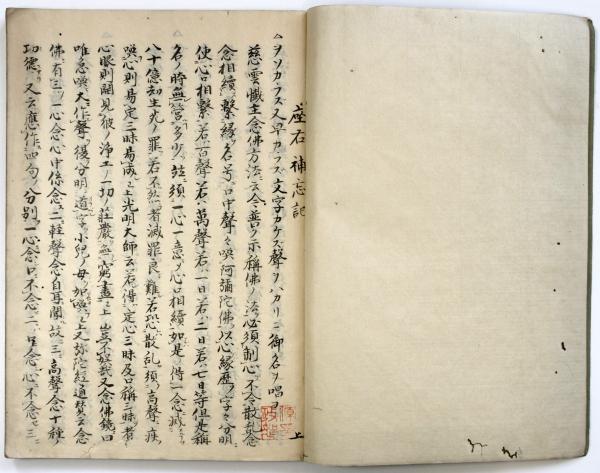 座右補忘記 上
ヲソカラズ又早カラズ文字カケズ声ヲハカリニ御名ヲ唱ヨ
慈雲懺主念佛方法云今普ク示稱佛ノ法必須制心不令散乱念
念相續繫緣名号口中聲々唤阿彌陀佛以心緣歴字々分明
使心口相繫若百聲若萬聲若一日若二日若七日等但是稱
名ノ時無管多少並須一心一意心口相續如是ノ得一念滅
八十億劫生死ノ罪若不然者滅罪良難若恐散乱須高聲疾
唤心則易定三昧易成上光明大師云若得定心三昧及口稱三昧者
心眼則開見彼ノ浄土ノ一切ノ莊嚴無窮盡上 又念佛鏡曰
唯念唤大作聲後分明道字小兒ノ母如唤上又弥陀經通賛云念
佛有三一心念心中係念二軽聲念自耳聞故三高聲念十種ノ
功徳又云應作四句ノ分別一心念口不念二口念心不念三